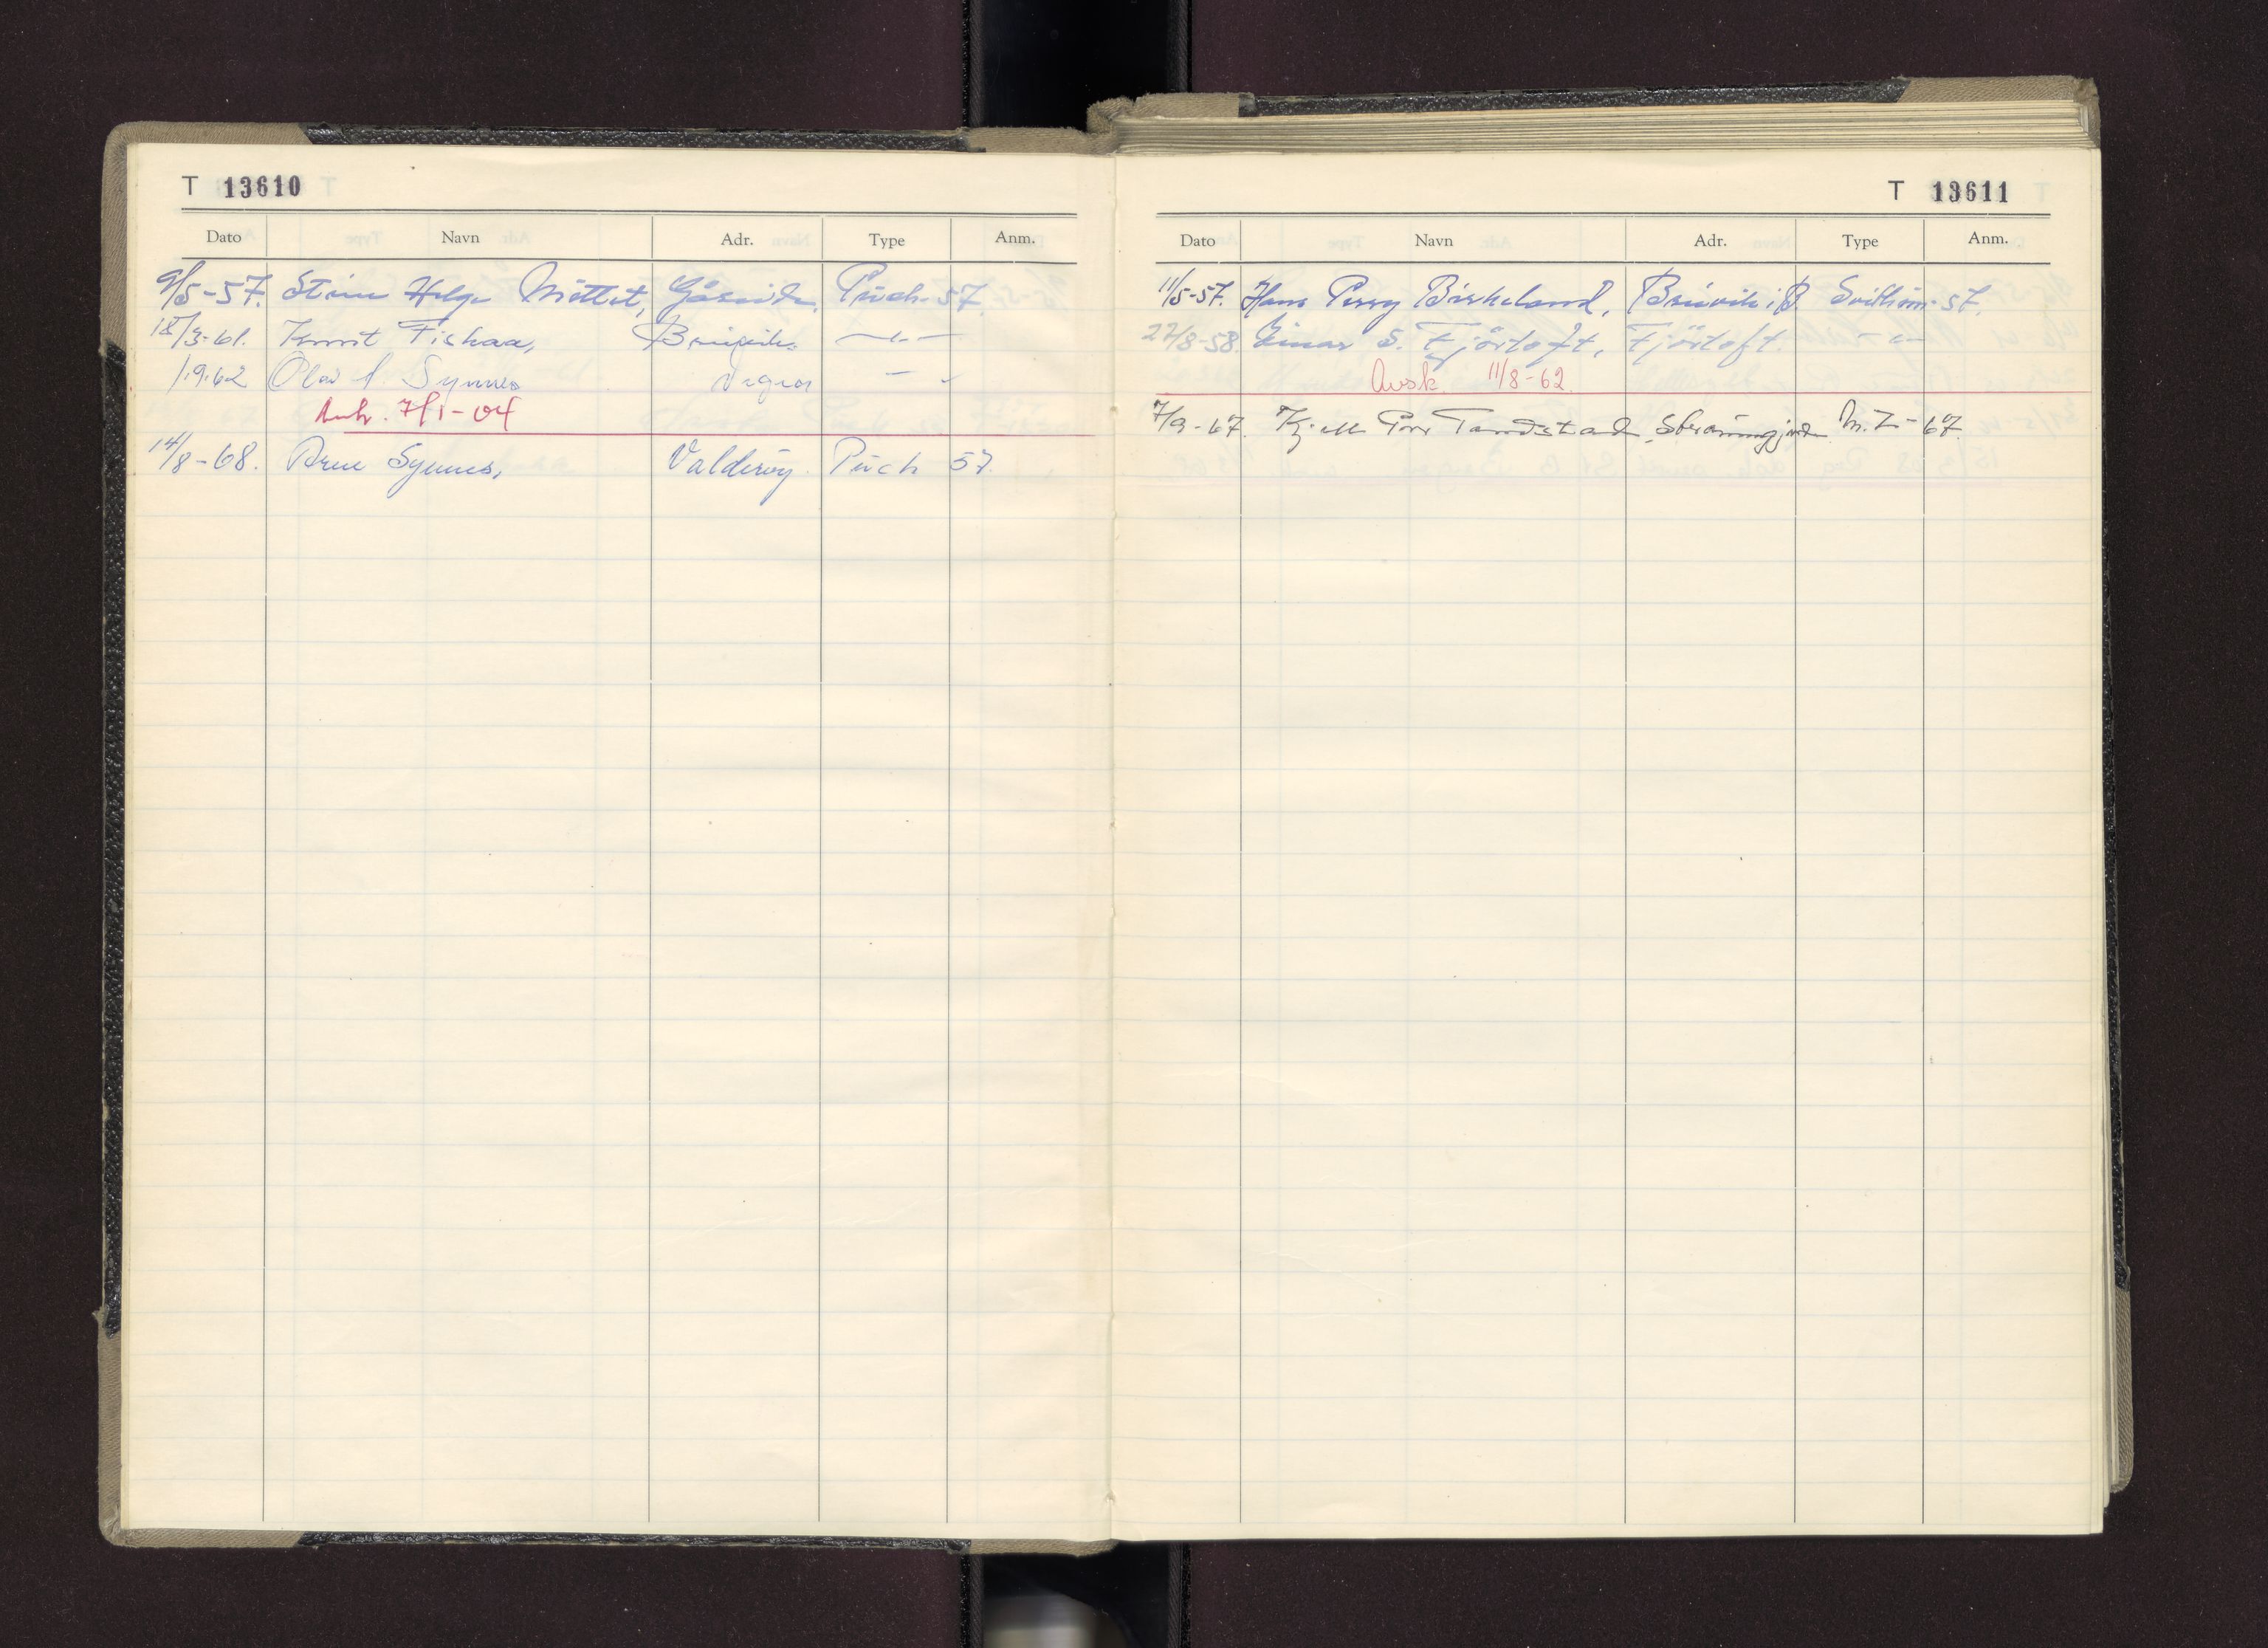 T 13610
Dato Navn Adr. Type Anm.
9/5-57. Stein Helge Mittet, Gåseide. Puch-57.
18/3-61. Fiskaa,
1.9.62 Olav Synnes Vegnes
7/1-04
14/8-68. Arne Synnes, Valderöy. Puch 57.
T 13611
Dato Navn Adr. Type Anm.
11/5-57. Hans Perry Birkeland, Brüvik i B. Svithun-57.
22/8-58. Einar S. Fjörtoft, Fjörtoft. -"-
Avsk. 11/8-62.
7/9-67. Kjell Tandstad, M.Z-67.